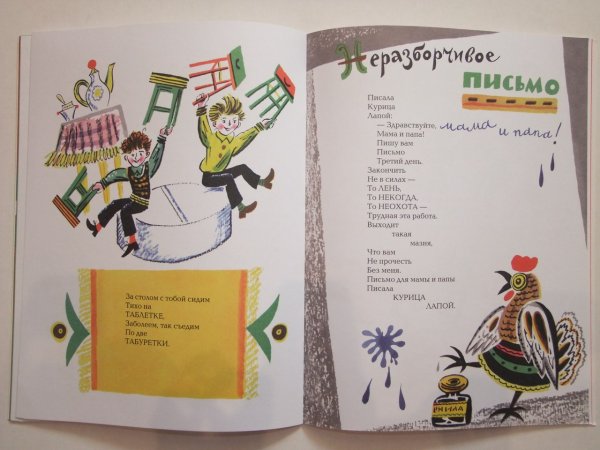 За столом с тобой сидим
Тихо на
ТАБЛЕТКЕ,
Заболеем, так съедим
По две
ТАБУРЕТКИ.
Неразборчивое
ПИСЬМО
Писала
Курица
Лапой:
— Здравствуйте,
Мама и папа!
Пишу вам
Письмо
Третий день.
Закончить
Не в силах —
То ЛЕНЬ,
То НЕКОГДА,
То НЕОХОТА —
Трудная эта работа.
Выходит
такая
мазня,
Что вам
Не прочесть
Без меня.
Письмо для мамы и папы
Писала
КУРИЦА
ЛАПОЙ.
мама и папа!